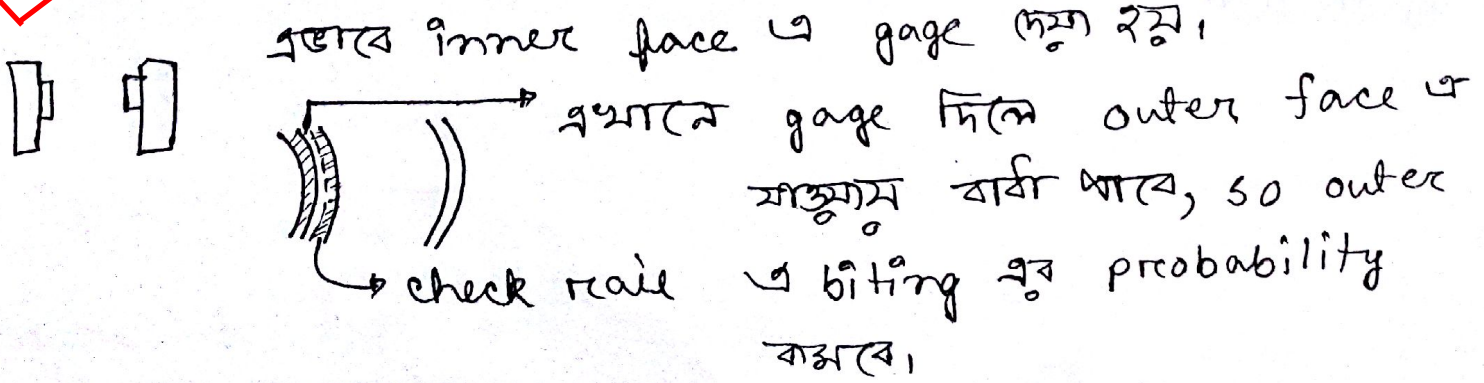 এভাবে inner face এ gage দেয়া হয়।
এখানে gage দিলে outer face এ
যাওয়ায় বাধা পাবে, so outer
check rail এ biting এর probability
কমবে।